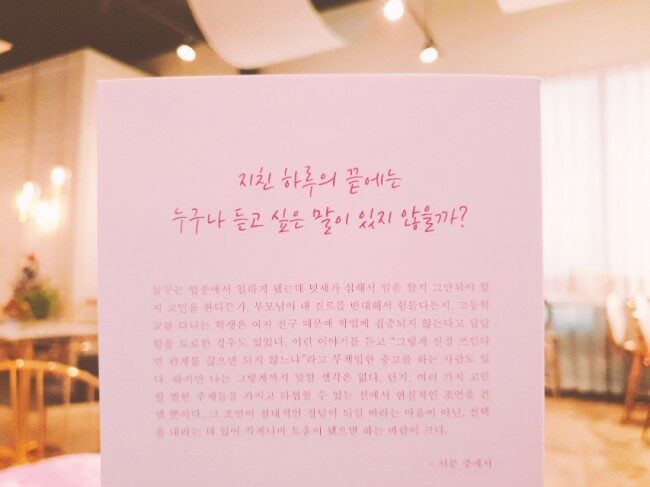 지친 하루의 끝에는
누구나 듣고 싶은 말이 있지 않을까?
꿈꾸는 업종에서 일하게 됐는데 텃새가 심해서 일을 할지 그만둬야 할
지 고민을 한다든가. 부모님이 내 진로를 반대해서 힘들다든지. 고등학
교를 다니는 학생은 여자 친구 때문에 학업에 집중되지 않는다고 답답
함을 토로한 경우도 있었다. 이런 이야기를 듣고 “그렇게 신경 쓰인다
면 관계를 끊으면 되지 않느냐”라고 무책임한 충고를 하는 사람도 있
다. 하지만 나는 그렇게까지 말할 생각은 없다. 단지, 여러 가지 고민
할 법한 주제들을 가지고 타협할 수 있는 선에서 현실적인 조언을 건
넬 뿐이다. 그 조언이 절대적인 정답이 되길 바라는 마음이 아닌, 선택
을 내리는 데 있어 작게나마 도움이 됐으면 하는 바람이 크다.
- 서문 중에서